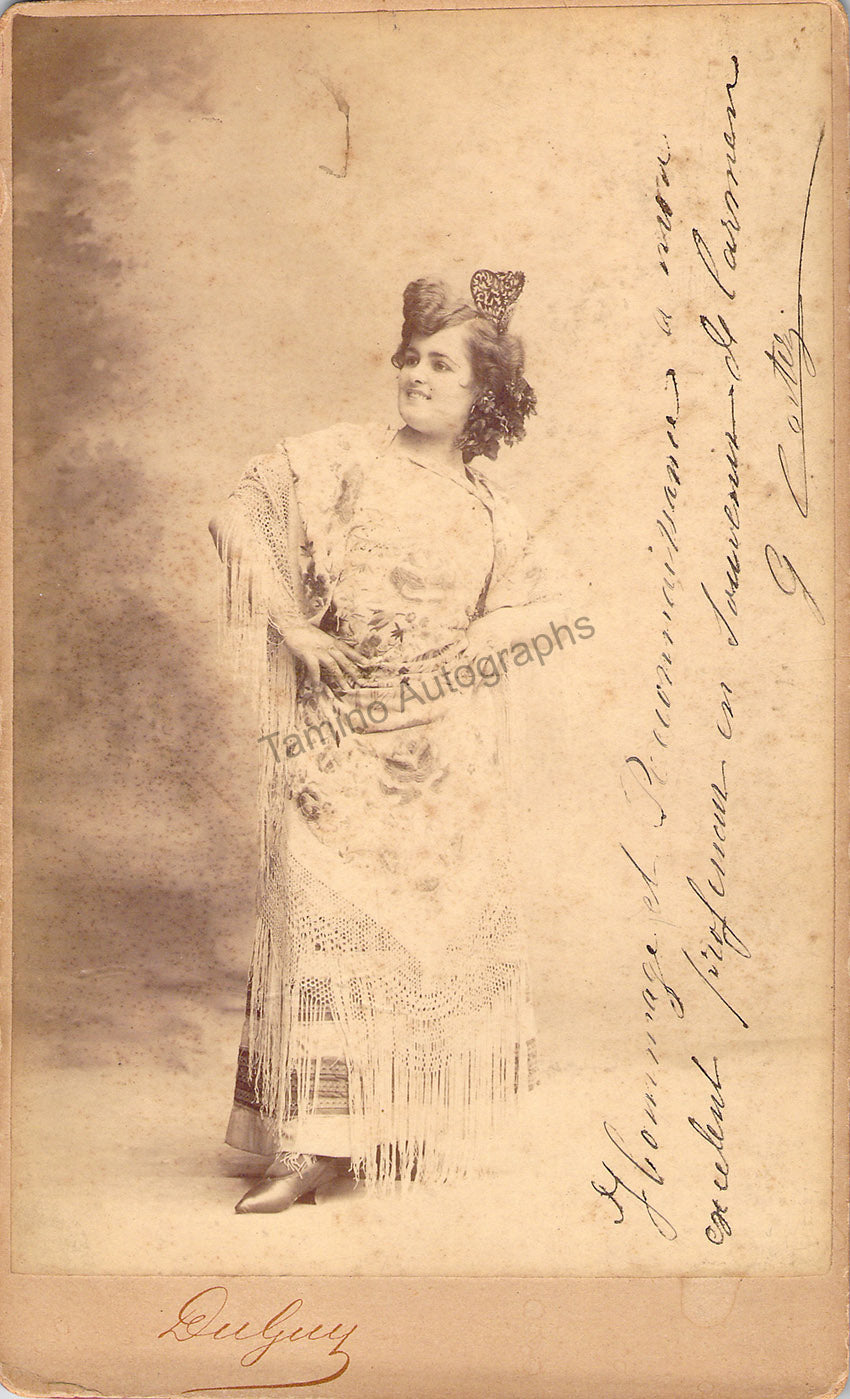 Hommage et Reconnaissance a mon
excelent professeur en Souvenir de Carmen
G Cortez
Tamino Autographs
DuGuy